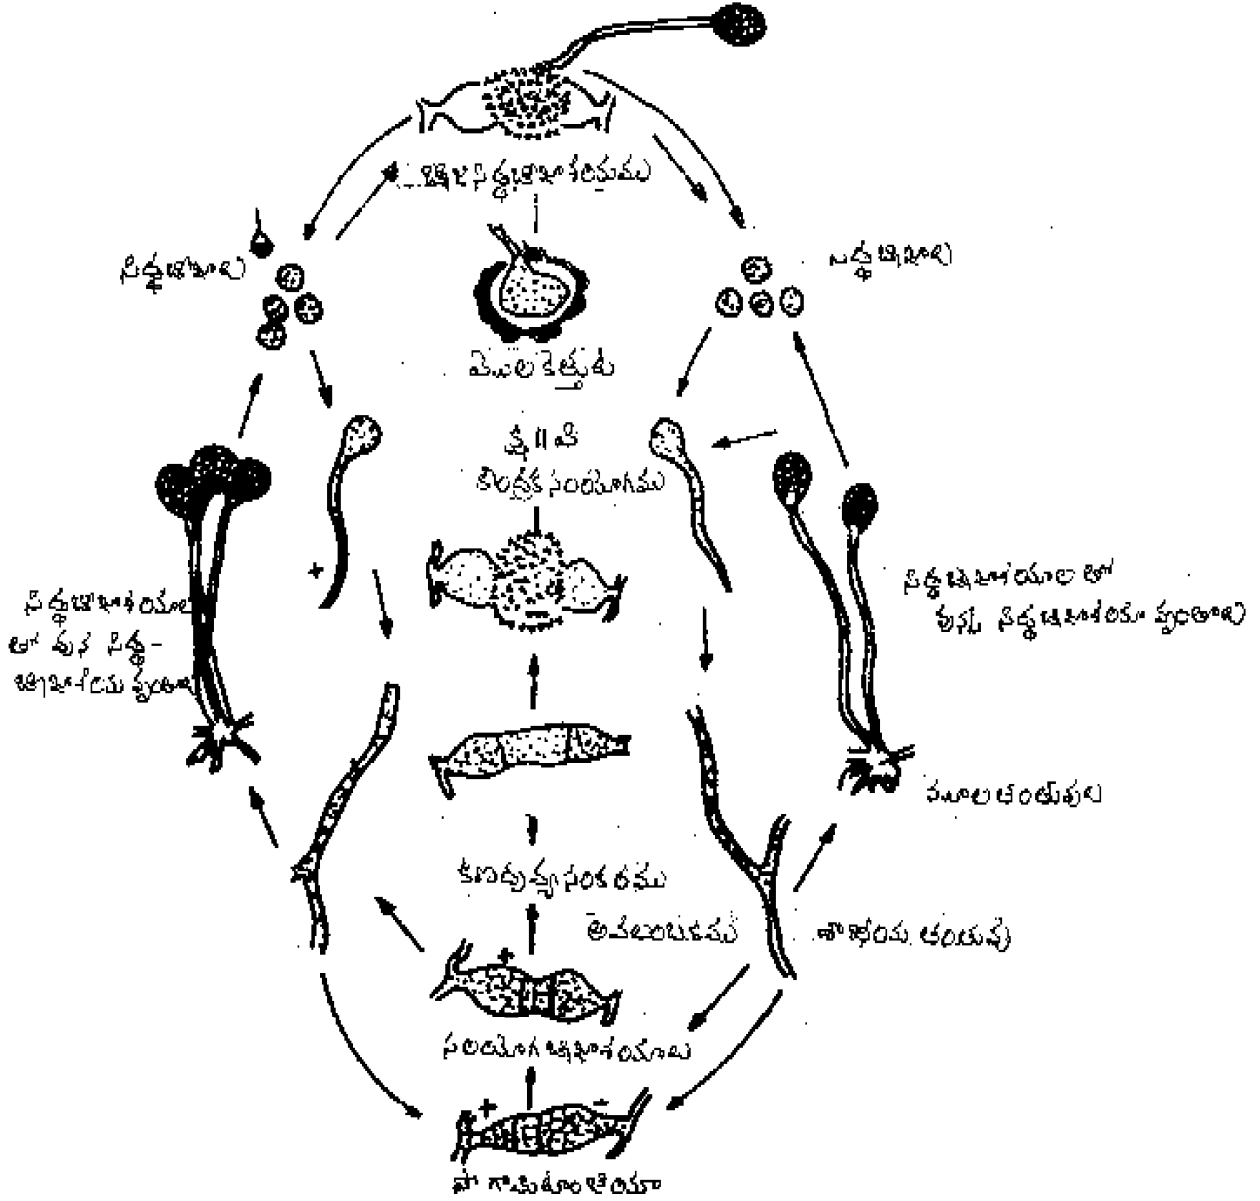 సిద్ధబీజాశయము
సిద్ధబీజాలు
సిద్ధబీజాలు
మొలకెత్తుట
క్ష॥వి
కేంద్రక సంయోగము
సిద్ధబీజాశయాల తో
వున్న సిద్ధబీజాశయ వృంతాలు
సిద్ధబీజాశయాల
తో వున్న సిద్ధ-
బీజాశయ వృంతాలు
మూల తంతువులు
కణద్రవ్య సంకరము
అవలంబకము
శాఖీయ తంతువు
సంయోగబీజాశయాలు